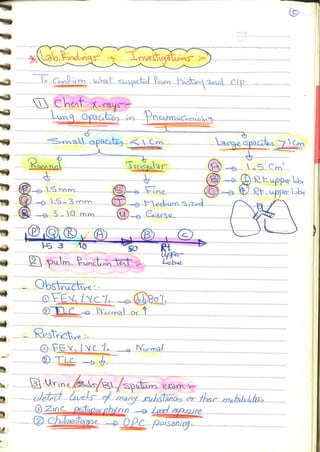 6
* Lab. Findings + Investigations :-
To Confirm what suspected from history and C/P
1 Chest x-rays:-
Lung Opacities in Pneumoconiosis
Small opacities < 1 Cm
Large opacities > 1 Cm
Round
Irregular
A → 1-5 Cm
P → 1.5 mm
S → Fine
B → Rt. upper lobe
Q → 1.5-3 mm
T → Medium sized
C → Rt. upper lobe
R → 3-10 mm
U → Coarse
P Q R A B C
1.5 3 10 50 Rt upper Lobe
2 pulm. Function test:-
- Obstructive:-
① FEV₁ / VC % → 80%
② TLC → Normal or ↑
- Restrictive:-
① FEV₁ / VC % → Normal
② TLC → ↓
3 Urine / / Bl. / sputum exam:-
detect levels of many substances or their metabolites
① Zinc protoporphyrin → Lead exposure
② Cholinesterase → OPC poisoning.